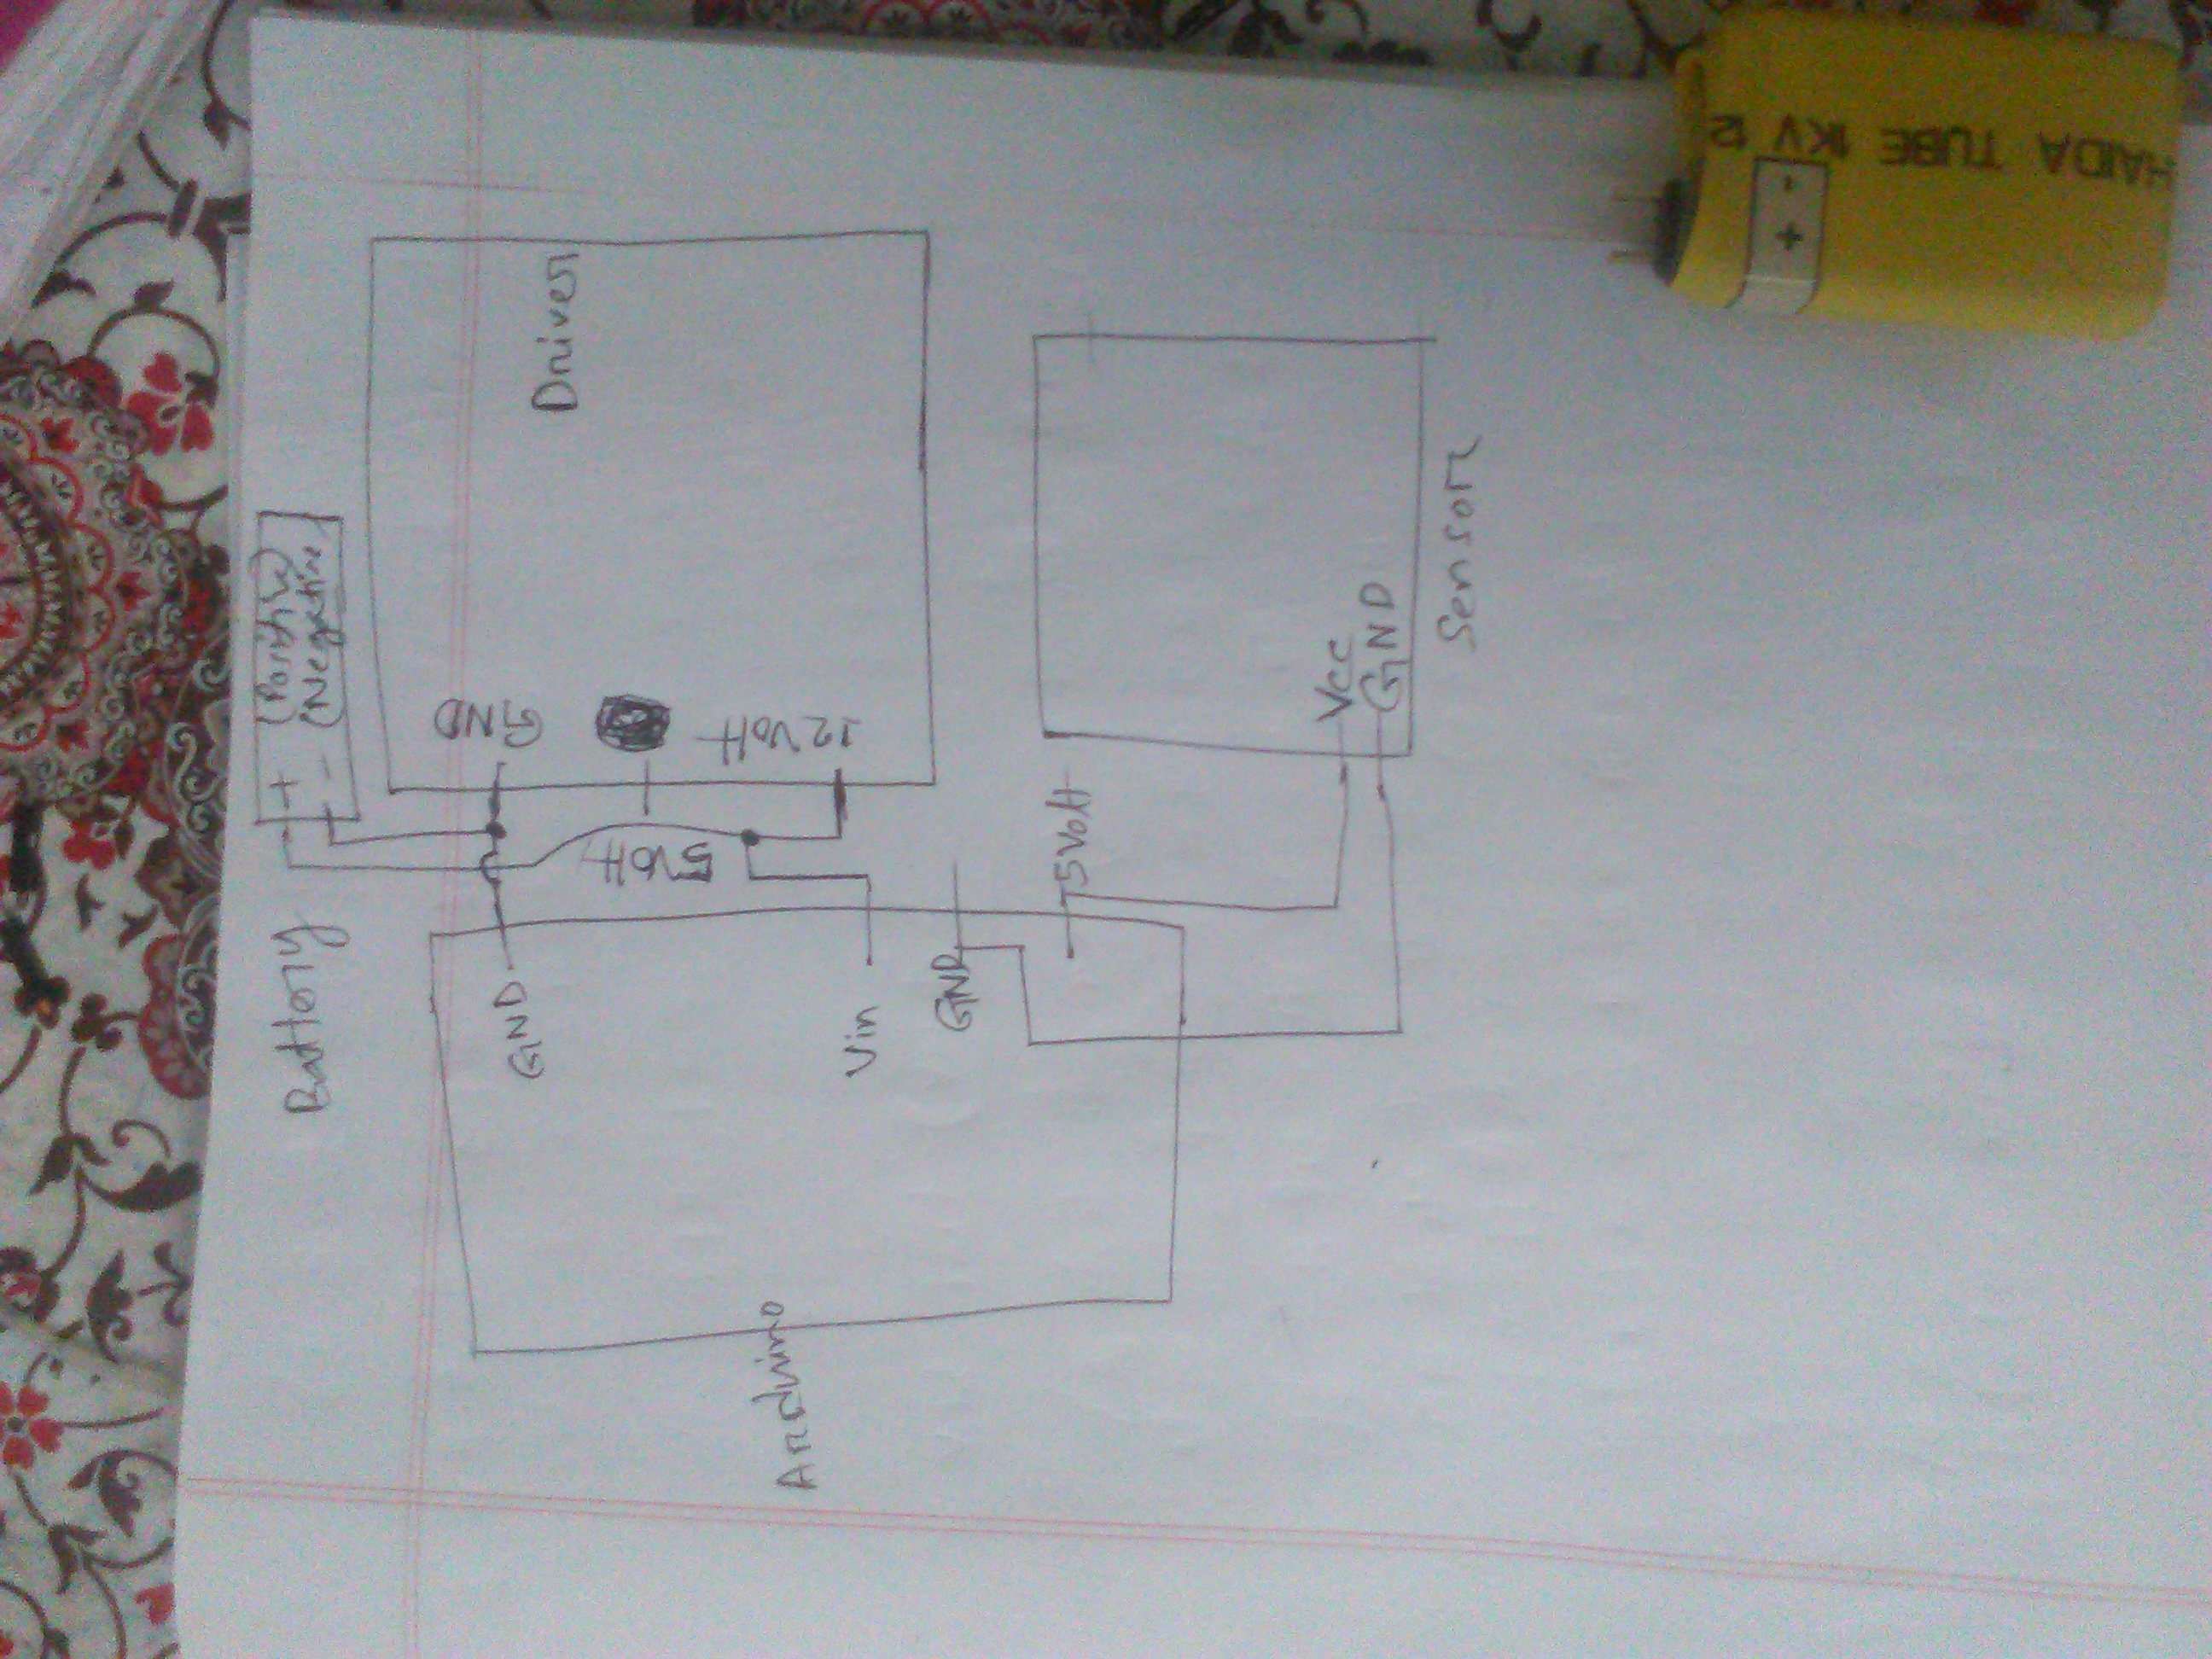 Battery
+ (Positive)
- (Negative)
GND
GND
Driver
5Volt
12 Volt
Arduino
Vin
GND
5Volt
Vcc
GND
Sensor
+ -
HAIDA TUBE 1KV 12